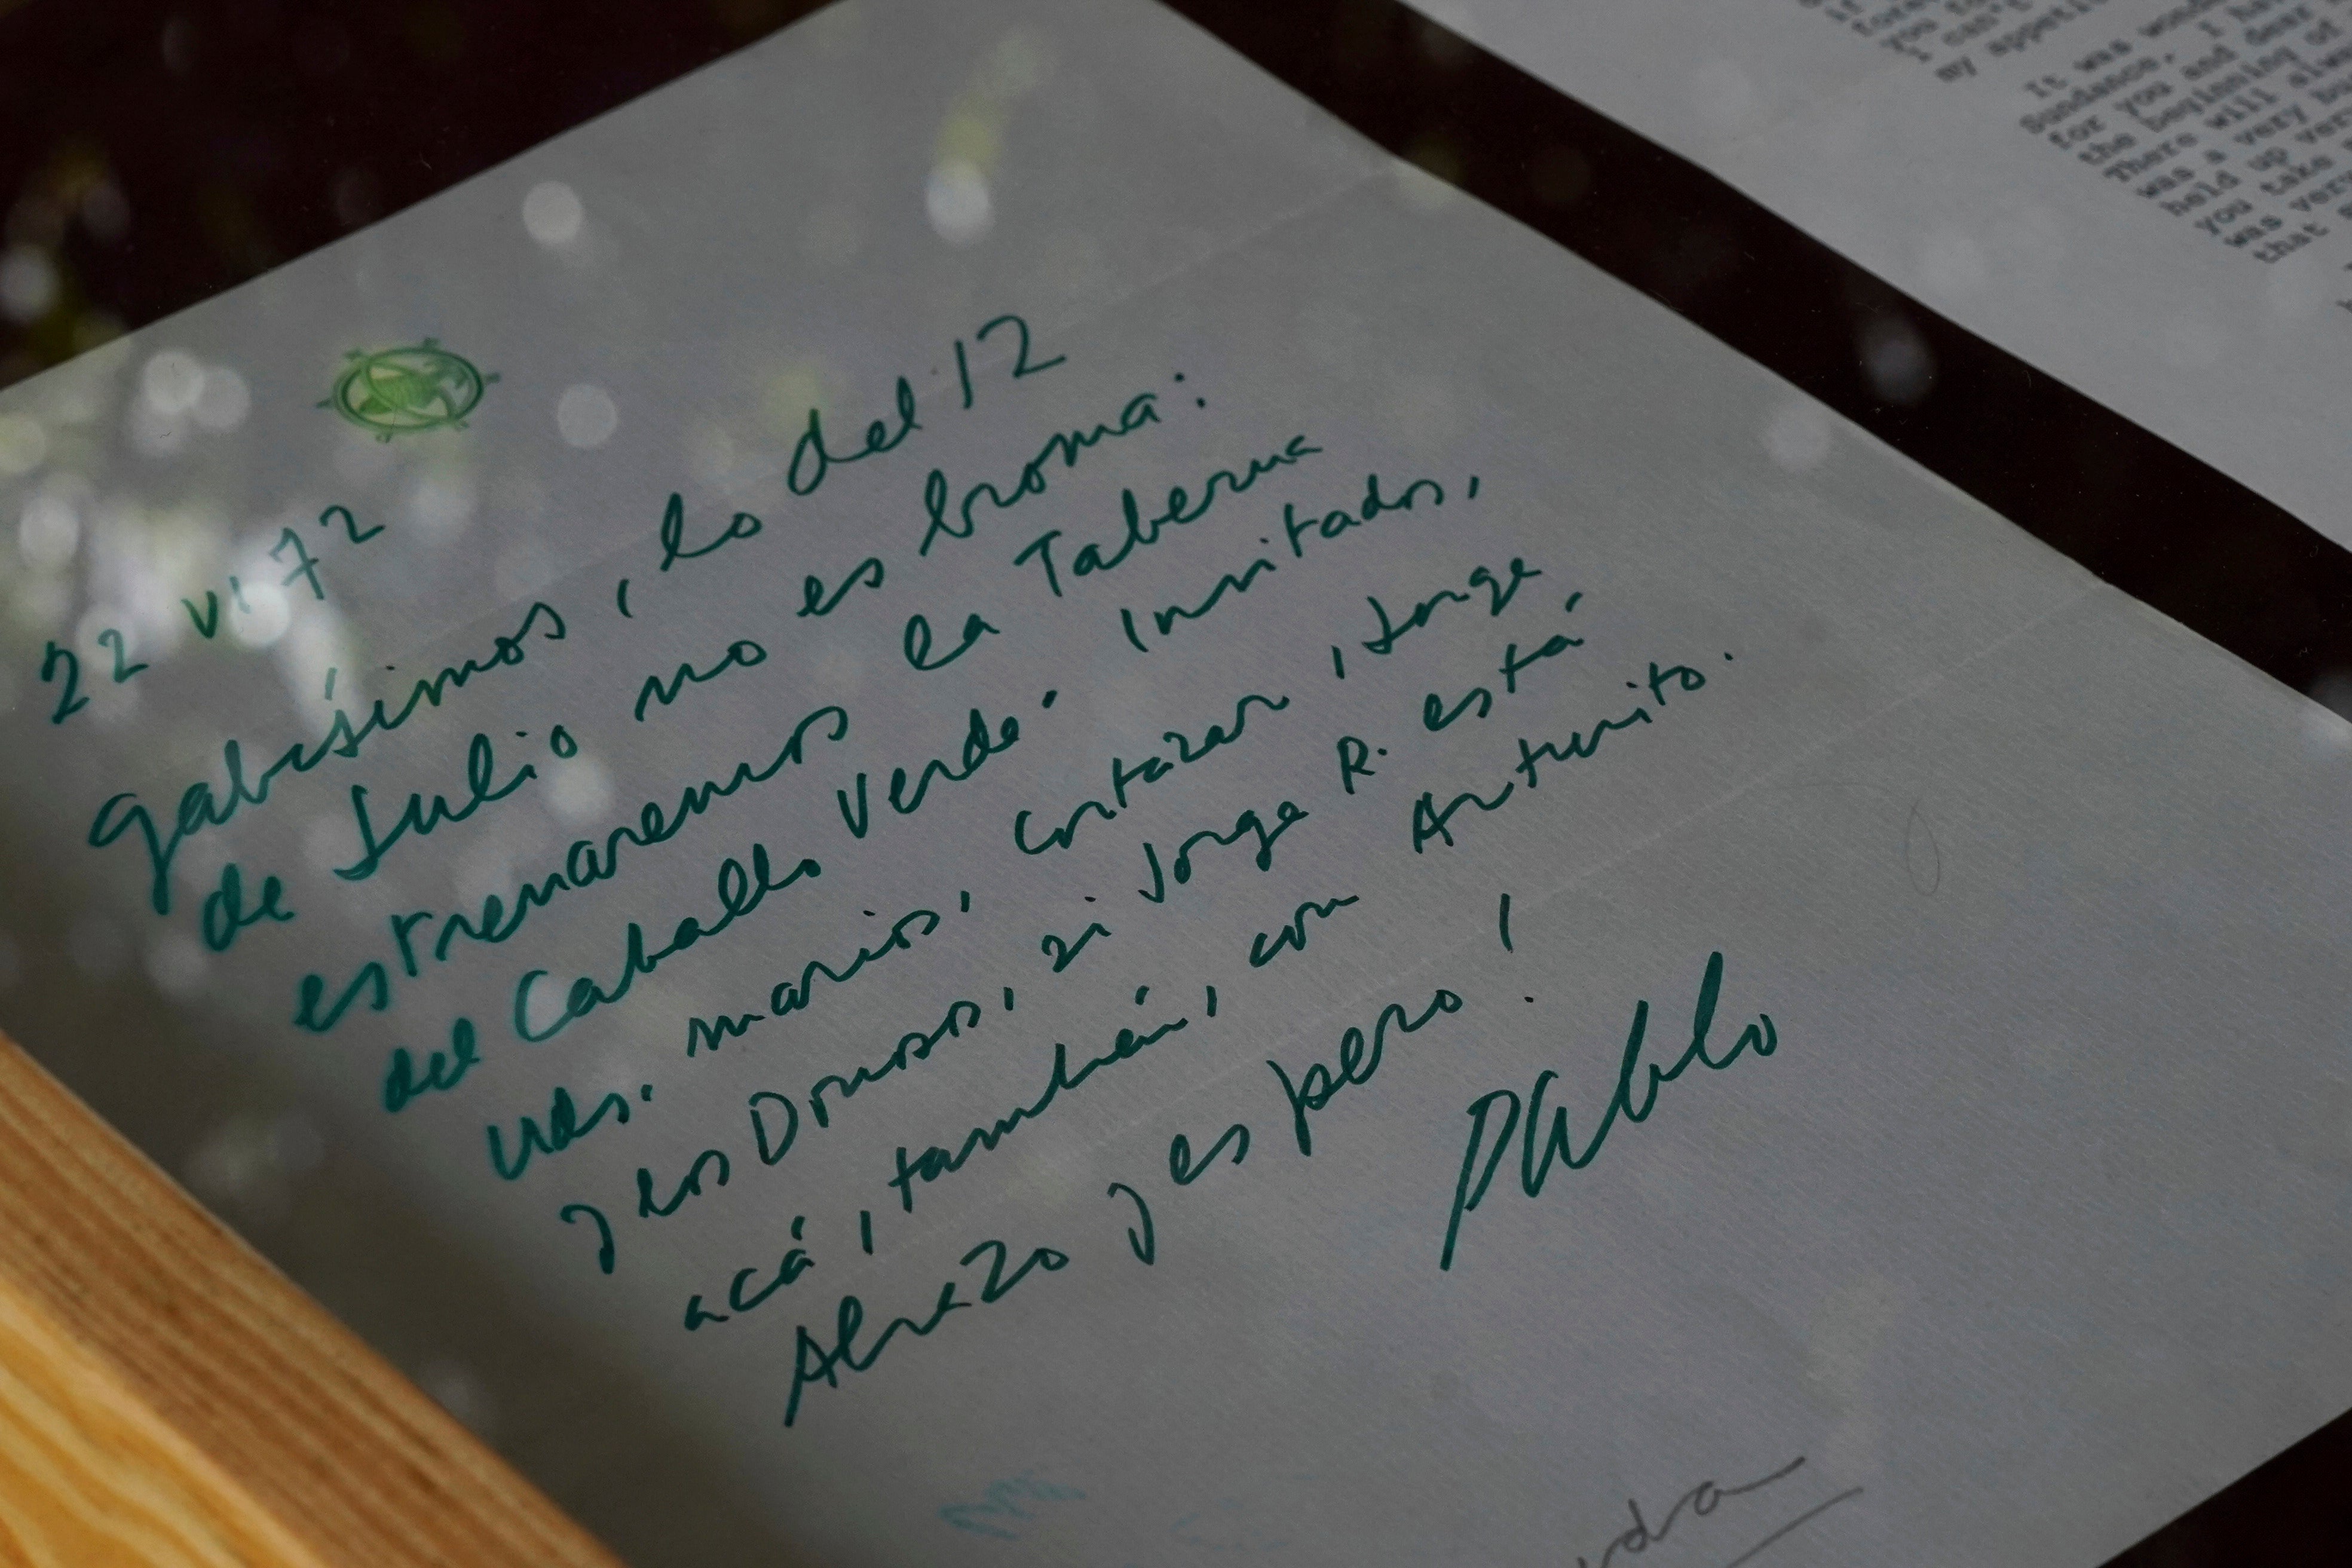 22 VI 72
Gabísimos, lo del 12
de Julio no es broma:
estrenaremos la Taberna
del Caballo Verde. Invitados,
Uds. marios, Cortazar, Jorge
y los Donoso, si Jorge R. está
acá, también, con Arturito.
Abrazo y espero!
Pablo
my appetit
It was won
Sundance, I ha
for you and dear
the beginning of
There will alwa
was a very b
held up ver
you take
was very
that